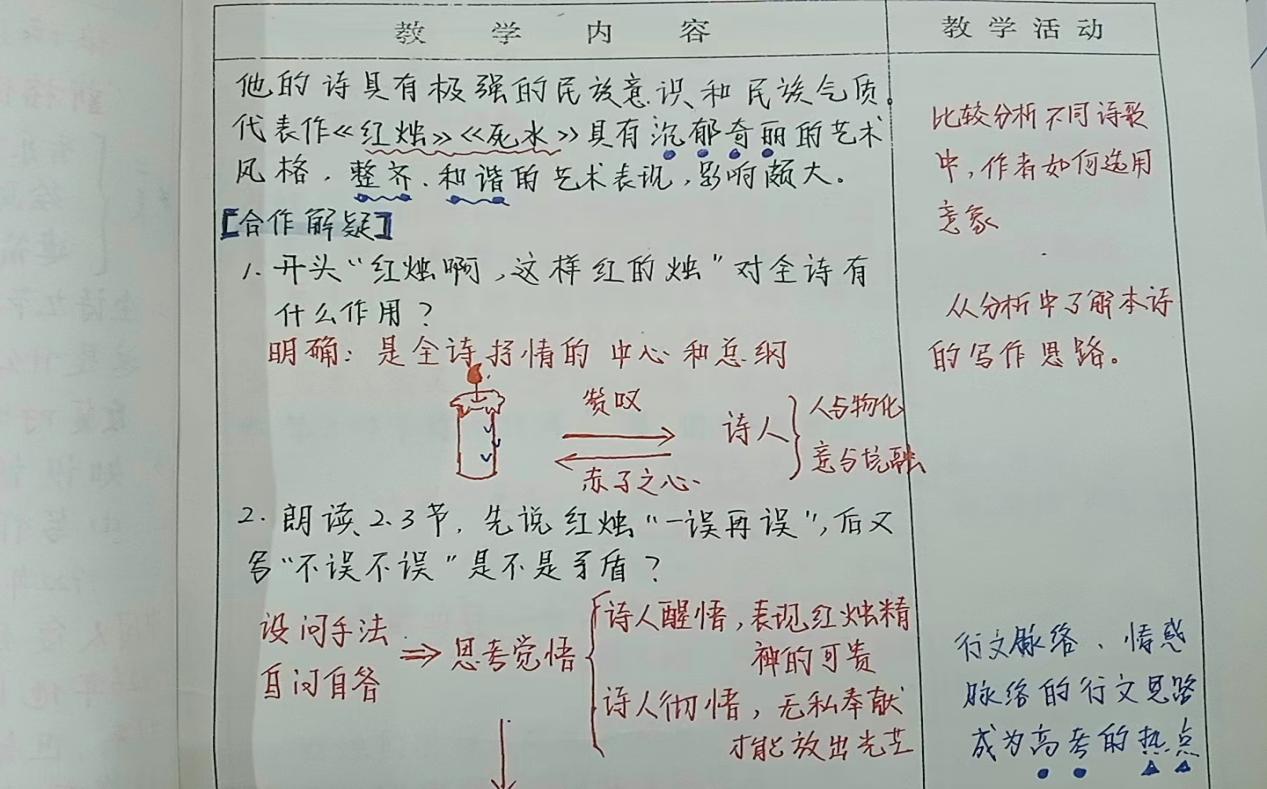 教学内容
教学活动
他的诗具有极强的民族意识和民族气质。
代表作《红烛》《死水》具有沉郁奇丽的艺术
风格，整齐、和谐的艺术表现，影响颇大。
[合作解疑]
1. 开头“红烛啊，这样红的烛”对全诗有
什么作用？
明确：是全诗抒情的中心和总纲
赞叹
赤子之心
诗人
人与物化
意与境融
2. 朗读2.3节，先说红烛“一误再误”，后又
写“不误不误”是不是矛盾？
设问手法
自问自答
思考觉悟
诗人醒悟，表现红烛精
神的可贵
诗人彻悟，无私奉献
才能放出光芒
比较分析不同诗歌
中，作者如何选用
意象
从分析中了解本诗
的写作思路。
行文脉络、情感
脉络的行文思路
成为高考的热点